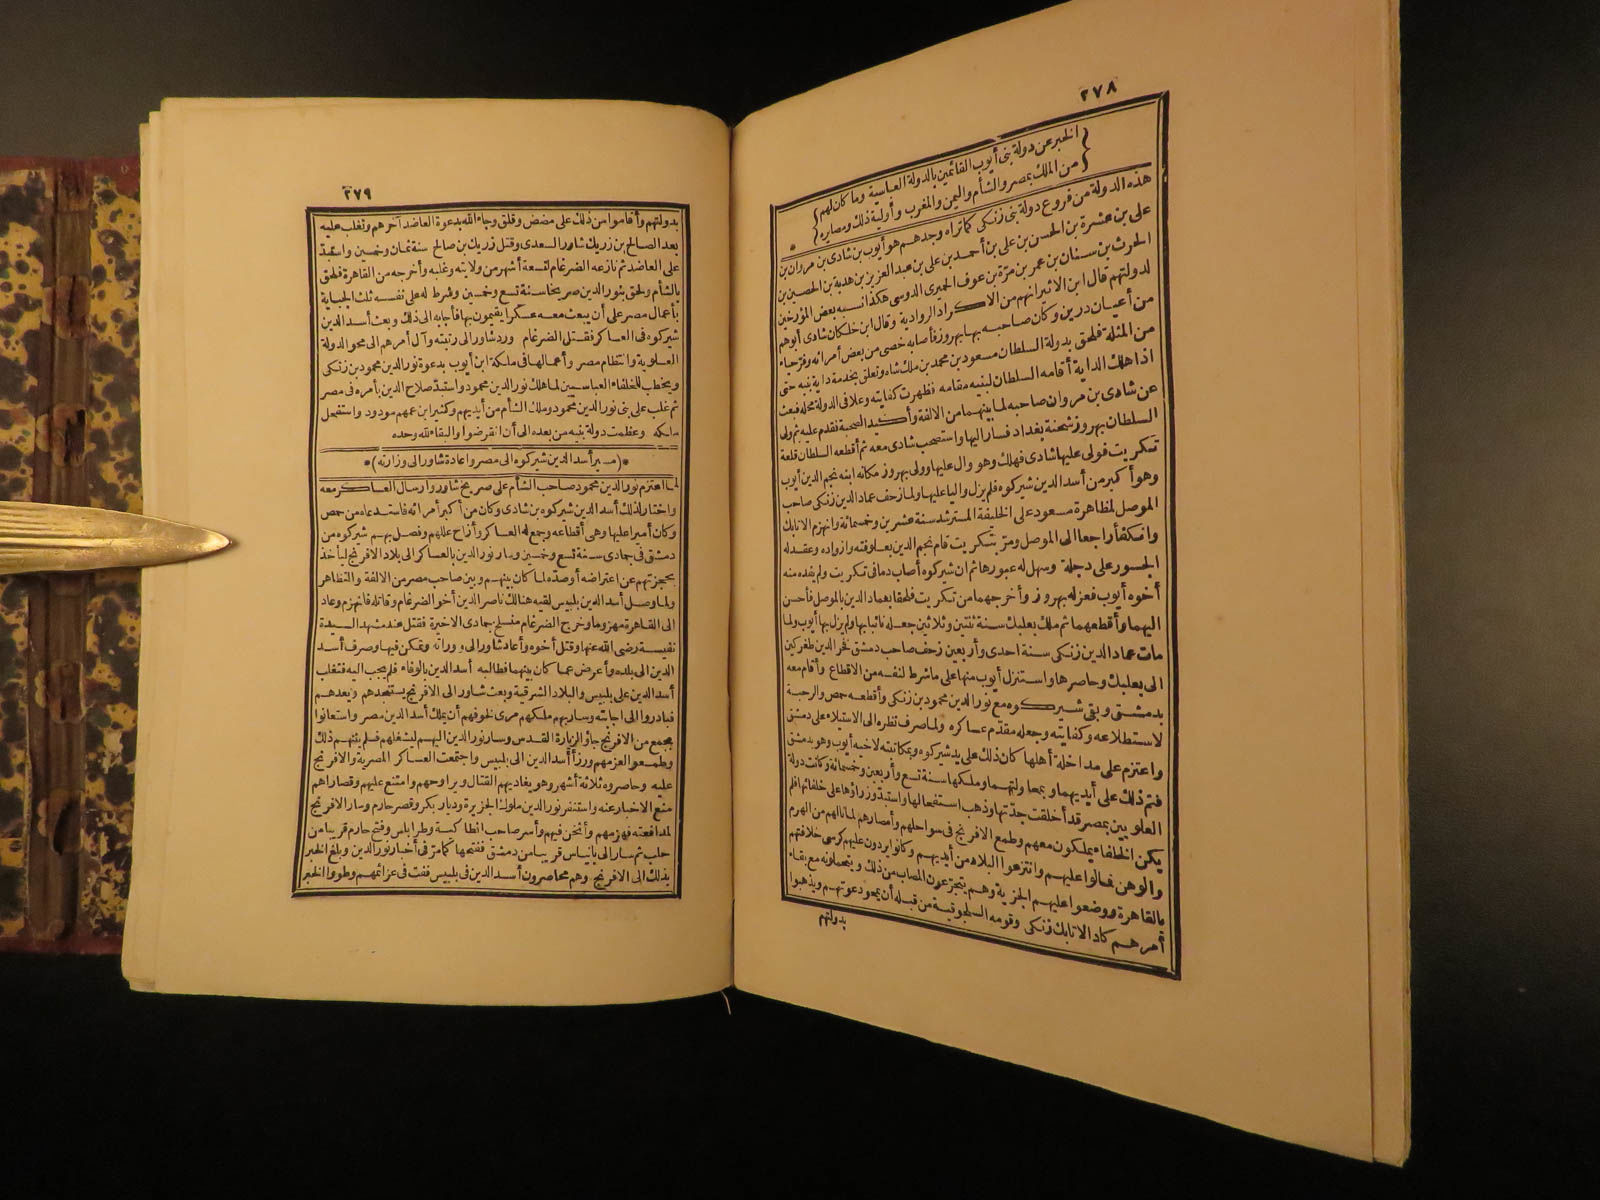 ٢٧٨
الخبر عن دولة بنى أيوب القائمين بالدولة العباسية وما كان لهم
من الملك بمصر والشأم واليمن والمغرب وأولية ذلك ومصايره
هذه الدولة من فروع دولة بنى زنكى كما تراه وجدهم هو أيوب بن شادى بن مروان بن
على بن عشرة بن الحسن بن على بن أحمد بن على بن عبد العزيز بن هدبة بن الحصين بن
الحرث بن سنان بن عمر بن مرة بن عوف الحميرى الدوسى هكذا نسبه بعض المؤرخين
لدولتهم قال ابن الاثير انهم من الاكراد الروادية وقال ابن خلكان شادى أبوهم
من أعيان درين وكان صاحبه بها بهروز فأصابه خصى من بعض أمرائه وفر حياء
من المثلة فلحق بدولة السلطان مسعود بن محمد بن ملك شاه وتعلق بخدمة داية بنيه حتى
اذا هلك الداية أقامه السلطان لبنيه مقامه فظهرت كفايته وعلا فى الدولة محله فبعث
عن شادى بن مروان صاحبه لما بينهما من الالفة وأكيد الصحبة فقدم عليه ثم ولى
السلطان بهروز شحنة بغداد فسار اليها واستصحب شادى معه ثم أقطعه السلطان قلعة
تكريت فولى عليها شادى فهلك وهو وال عليها وولى بهروز مكانه ابنه نجم الدين أيوب
وهو أكبر من أسد الدين شيركوه فلم يزل واليا عليها ولما زحف عماد الدين زنكى صاحب
الموصل لمظاهرة مسعود على الخليفة المسترشد سنة عشرين وخمسمائة وانهزم الاتابك
وانكفأ راجعا الى الموصل ومر بتكريت قام نجم الدين بعلوفته وازواده وعقد له
الجسور على دجلة وسهل له عبورها ثم ان شيركوه أصاب دما فى تكريت ولم يفده منه
أخوه أيوب فعزله بهروز وأخرجهما من تكريت فلحقا بعماد الدين بالموصل فأحسن
اليهما وأقطعهما ثم ملك بعلبك سنة ثنتين وثلاثين جعله نائبا بها ولم يزل بها أيوب ولما
مات عماد الدين زنكى سنة احدى وأربعين زحف صاحب دمشق فخر الدين طغركين
الى بعلبك وحاصرها واستنزل أيوب منها على ما شرط لنفسه من الاقطاع وأقام معه
بدمشق وبقى شيركوه مع نور الدين محمود بن زنكى وأقطعه حمص والرحبة
لاستطلاعه وكفايته وجعله مقدم عساكره ولما صرف نظره الى الاستيلاء على دمشق
واعتزم على مداخلة أهلها كان ذلك على يد شيركوه وبمكاتبته لاخيه أيوب وهو بدمشق
فتم ذلك على أيديهما وبمحاولتهما وملكها سنة تسع وأربعين وخمسمائة وكانت دولة
العلويين بمصر قد أخلقت جدتها وذهب استفحالها واستبد وزراؤها على خلفائها فلم
يكن الخلفاء يملكون معهم وطمع الافرنج فى سواحلهم وأمصارهم لما نالهم من الهرم
والوهن فمالوا عليهم وانتزعوا البلاد من أيديهم وكانوا يردون عليهم كرسى خلافتهم
بالقاهرة ووضعوا عليهم الجزية وهم يتجرعون المصاب من ذلك ويتحملونه مع بقاء
أمرهم كاد الاتابك زنكى وقومه السلجوقية من قبله أن يمحو دعوتهم ويذهبوا
بدولتهم
٢٧٩
بدولتهم وأقاموا من ذلك على مضض وقلق وجاء الله بدعوة العاضد آخرهم وتغلب عليه
بعد الصالح بن زريك شاور السعدى وقتل زريك بن صالح سنة ثمان وخمسين واستبد
على العاضد ثم نازعه الضرغام لتسعة أشهر من ولايته وغلبه وأخرجه من القاهرة فلحق
بالشأم ولحق بنور الدين صريخا سنة تسع وخمسين وشرط له على نفسه ثلث الجباية
بأعمال مصر على أن يبعث معه عسكرا يقيمون بها فأجابه الى ذلك وبعث أسد الدين
شيركوه فى العساكر فقتل الضرغام ورد شاور الى رتبته وآل أمرهم الى محو الدولة
العلوية وانتظام مصر وأعمالها فى ملكة ابن أيوب بدعوة نور الدين محمود بن زنكى
ويخطب للخلفاء العباسيين لما هلك نور الدين محمود واستبد صلاح الدين بأمره فى مصر
ثم غلب على بنى نور الدين محمود وملك الشأم من أيديهم وكثير ابن عمهم مودود واستفحل
ملكه وعظمت دولة بنيه من بعده الى أن انقرضوا والبقاء لله وحده
*(مسير أسد الدين شيركوه الى مصر واعادة شاور الى وزارته)*
لما اعتزم نور الدين محمود صاحب الشأم على صريخ شاور وارسال العساكر معه
واختار لذلك أسد الدين شيركوه بن شادى وكان من أكبر أمرائه فاستدعاه من حمص
وكان أميرا عليها وهى أقطاعه وجمع له العساكر وأزاح عللهم وفصل بهم شيركوه من
دمشق فى جمادى سنة تسع وخمسين وسار نور الدين بالعساكر الى بلاد الافرنج ليأخذ
بحجزتهم عن اعتراضه أو صده لما كان بينهم وبين صاحب مصر من الالفة والتظاهر
ولما وصل أسد الدين بلبيس لقيه هنالك ناصر الدين أخو الضرغام وقاتله فانهزم وعاد
الى القاهرة مهزوما وخرج الضرغام منسلخ جمادى الاخيرة فقتل عند مشهد السيدة
نفيسة رضى الله عنها وقتل أخوه وأعاد شاور الى وزارته وتمكن فيها وصرف أسد
الدين الى بلده وأعرض عما كان بينهما فطالبه أسد الدين بالوفاء فلم يجب اليه فتغلب
أسد الدين على بلبيس والبلاد الشرقية وبعث شاور الى الافرنج يستنجدهم ويعدهم
فبادروا الى اجابته وسار بهم ملكهم مرى لخوفهم أن يملك أسد الدين مصر واستعانوا
بجمع من الافرنج جاؤا لزيارة القدس وسار نور الدين اليهم ليشغلهم فلم يثنهم ذلك
وطمعوا لعزمهم ورزأ أسد الدين الى بلبيس واجتمعت العساكر المصرية والافرنج
عليه وحاصروه ثلاثة أشهر وهو يغاديهم القتال ويراوحهم وامتنع عليهم وقصاراهم
منع الاخبار عنه واستنفر نور الدين ملوك الجزيرة وديار بكر وقصر حارم وسار الافرنج
لمدافعته فهزمهم وأثخن فيهم وأسر صاحب انطاكية وطرابلس وفتح حارم قريبا من
حلب ثم سار الى بانياس قريبا من دمشق ففتحها كما مر فى أخبار نور الدين وبلغ الخبر
بذلك الى الافرنج وهم محاصرون أسد الدين فى بلبيس ففت فى عزائمهم وطووا الخبر